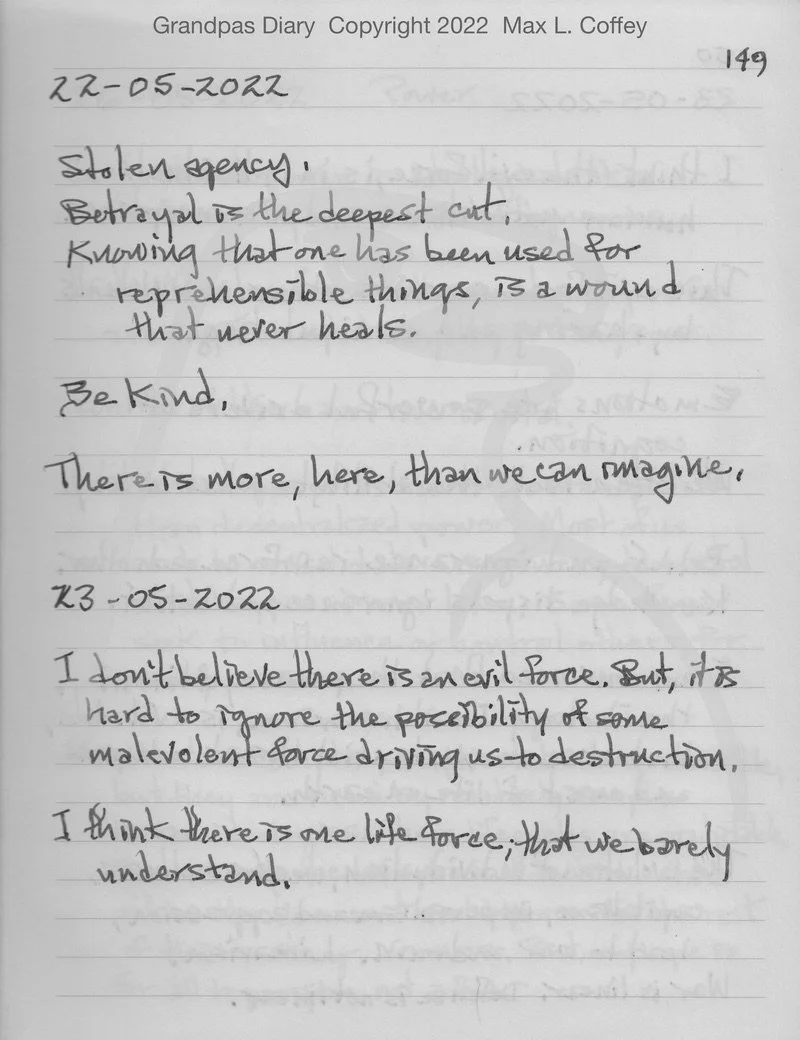 Grandpas Diary Copyright 2022 Max L. Coffey
149
22-05-2022
Stolen agency.
Betrayal is the deepest cut.
Knowing that one has been used for
reprehensible things, is a wound
that never heals.
Be Kind,
There is more, here, than we can imagine.
23-05-2022
I don't believe there is an evil force. But, it is
hard to ignore the possibility of some
malevolent force driving us to destruction.
I think there is one life force; that we barely
understand.